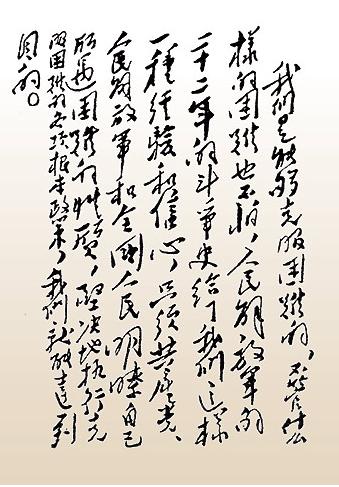 我们是能够克服困难的，不管什么
样的困难也不怕，人民解放军的
二十二年的斗争史给了我们这样
一种经验和信心，只须共产党、
人民解放军和全国人民明瞭自己
所遇困难的性质，坚决地执行克
服困难的各项根本政策，我们就能达到
目的。